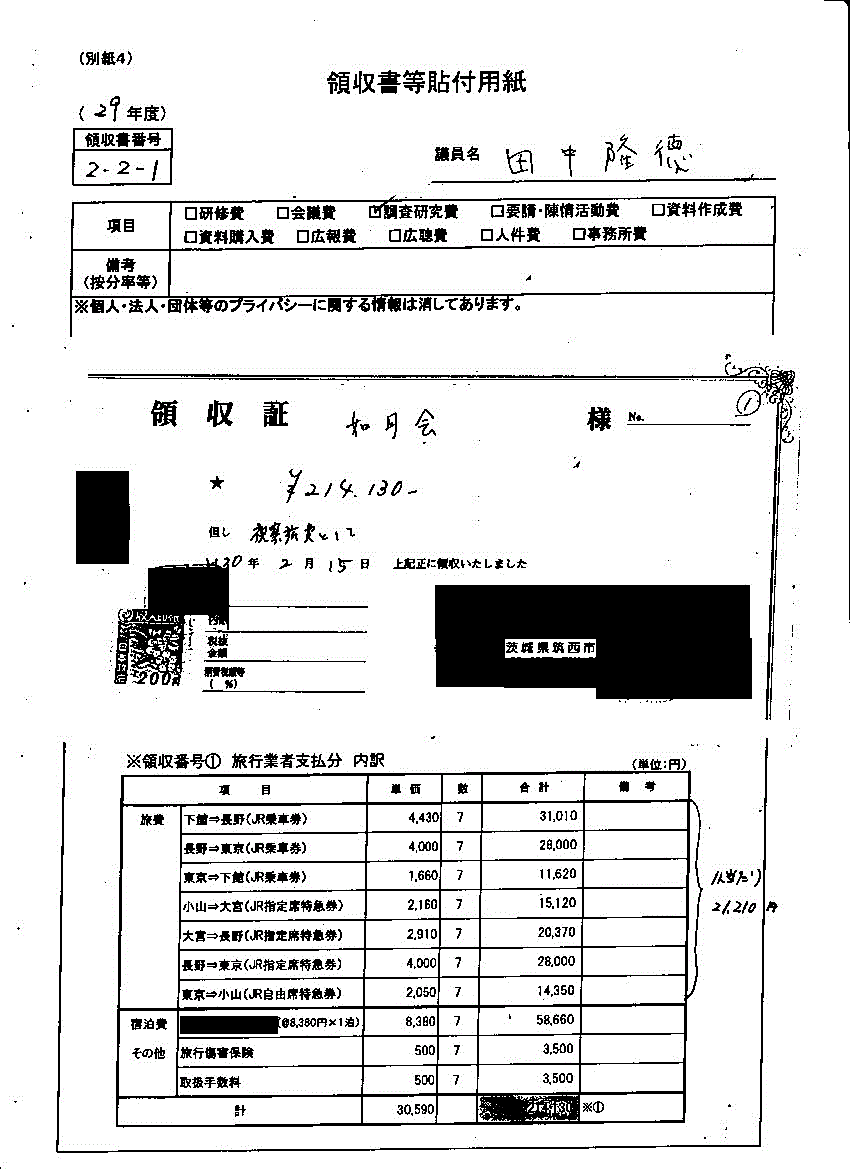 （別紙４）
領収書等貼付用紙
（ 29 年度）
領収書番号
2-2-1
議員名 田中隆徳
項目
□研修費 □会議費 ☑調査研究費 □要請・陳情活動費 □資料作成費
□資料購入費 □広報費 □広聴費 □人件費 □事務所費
備考
（按分率等）
※個人・法人・団体等のプライバシーに関する情報は消してあります。
領収証 如月会 様 No.
①
★ ¥214,130-
但し 視察旅費として
H30年 2月 15日 上記正に領収いたしました
内訳
税抜
金額
消費税額等
（ %）
200円
茨城県筑西市
※領収番号① 旅行業者支払分 内訳 （単位:円）
項目 単価 数 合計 備考
旅費 下館⇒長野（JR乗車券） 4,430 7 31,010
長野⇒東京（JR乗車券） 4,000 7 28,000
東京⇒下館（JR乗車券） 1,660 7 11,620
小山⇒大宮（JR指定席特急券） 2,160 7 15,120
大宮⇒長野（JR指定席特急券） 2,910 7 20,370
長野⇒東京（JR指定席特急券） 4,000 7 28,000
東京⇒小山（JR自由席特急券） 2,050 7 14,350
1人当たり
21,210円
宿泊費 （@8,380円×1泊） 8,380 7 58,660
その他 旅行傷害保険 500 7 3,500
取扱手数料 500 7 3,500
計 30,590 214,130 ※①